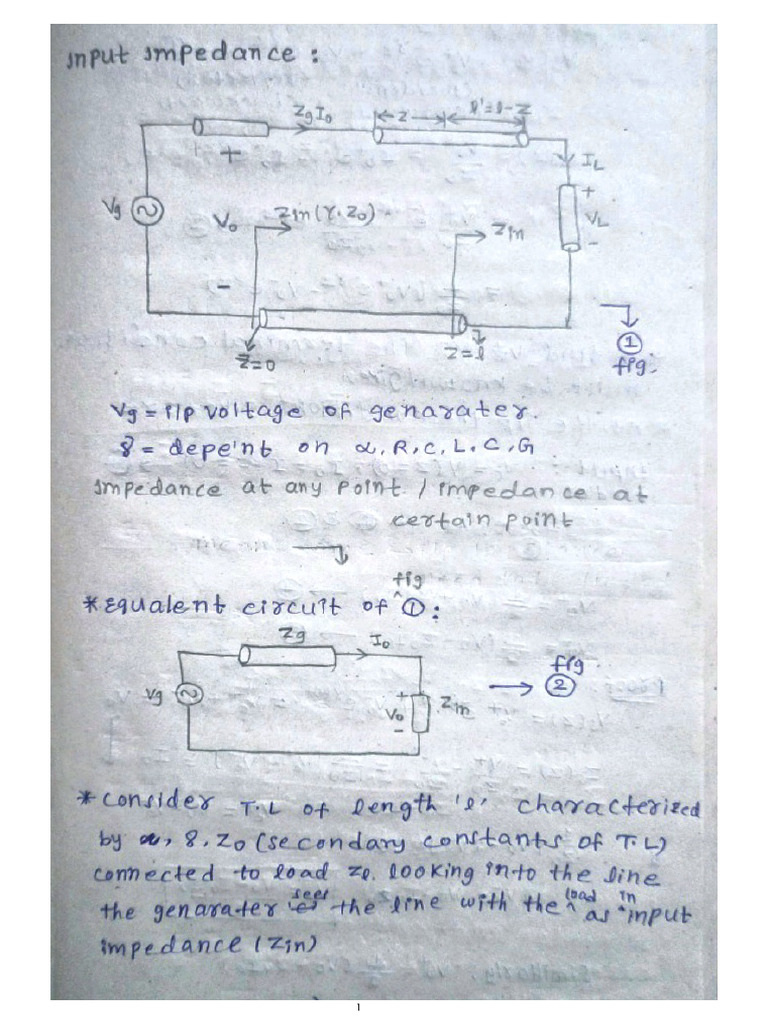 Input Impedance :
Zg I0
z
l'=l-z
IL
+
+
Vg
V0
Zin(γ.Z0)
Zin
VL
-
-
z=0
z=l
①
fig.
Vg = i/p voltage of genarater.
8 = depe'nt on α, R, C, L, C, G
Impedance at any point / impedance at
certain point
fig
* Equalent circuit of ^ ① :
Zg
I0
fig
②
Vg
+
V0
-
Zin
* consider T.L of length 'l' characterized
by α, 8, Z0 (secondary constants of T.L)
connected to load Zl. looking into the line
the genarater sees the line with the ^ load as ^ in input
impedance (Zin)
1